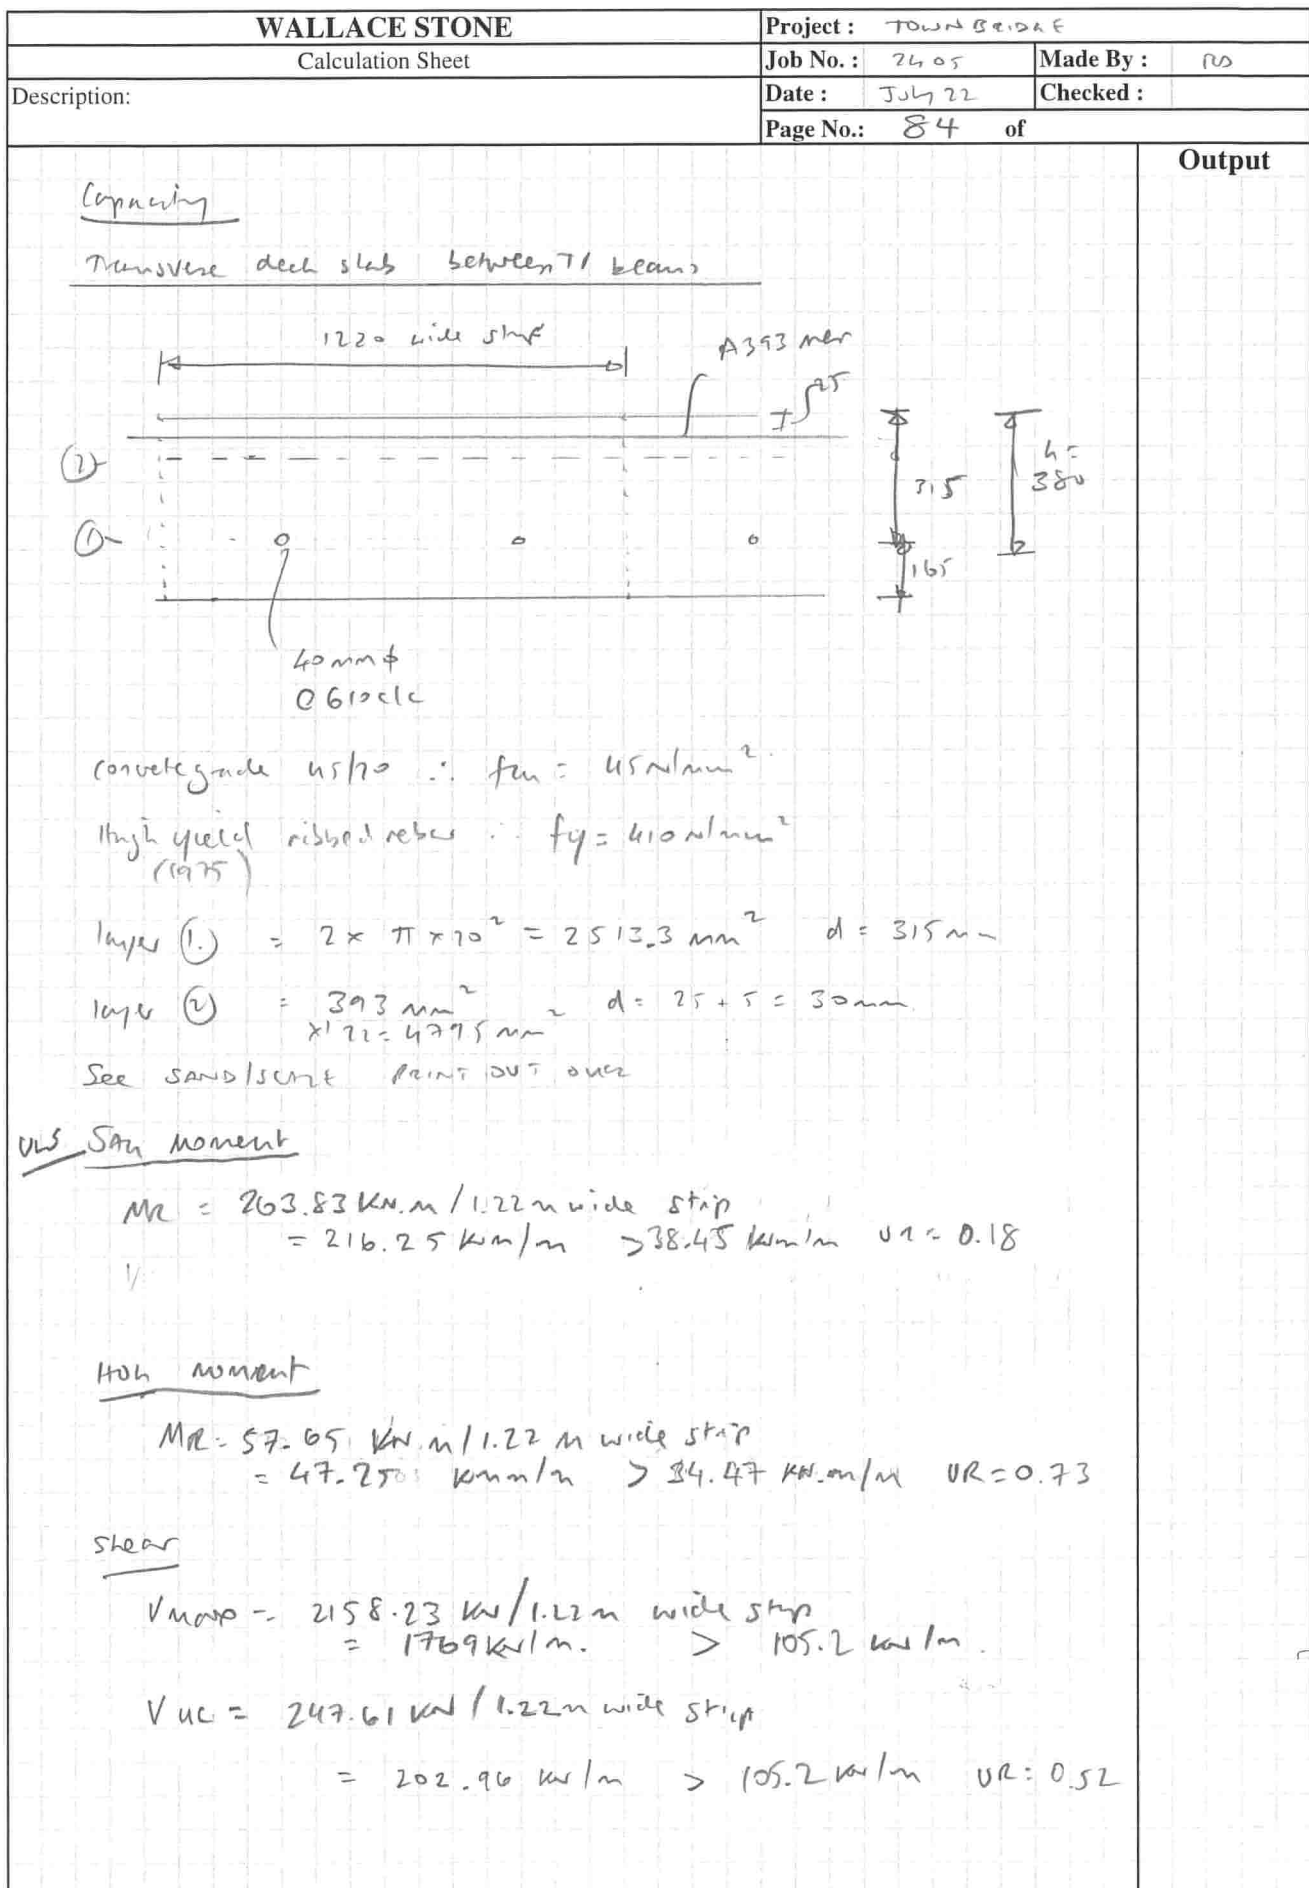 WALLACE STONE
Calculation Sheet
Description:
Project : TOWN BRIDGE
Job No. : 2405 Made By : RS
Date : July 22 Checked :
Page No.: 84 of
Output
Capacity
Transverse deck slab between T1 beams
1220 wide strip
A393 mesh
25
②
315
h =
380
①
165
40mm ϕ
@ 610 c/c
concrete grade 45/20 ∴ fcu = 45 N/mm²
High yield ribbed rebar ∴ fy = 410 N/mm²
(1975)
layer ①. = 2 x π x 20² = 2513.3 mm² d = 315 mm
layer ② = 393 mm² d = 25 + 5 = 30mm
x1.22 = 479.5 mm²
See SAND/SCALE PRINT OUT OVER
ULS SAG Moment
MR = 263.83 kN.m / 1.22 m wide strip
= 216.25 kNm/m > 38.45 kNm/m UR = 0.18
HOG Moment
MR = 57.65 kN.m / 1.22 m wide strip
= 47.250 kNm/m > 34.47 kN.m/m UR = 0.73
Shear
Vmax = 2158.23 kN / 1.22m wide strip
= 1769 kN/m. > 105.2 kN/m.
Vuc = 247.61 kN / 1.22m wide strip
= 202.96 kN/m > 105.2 kN/m UR: 0.52